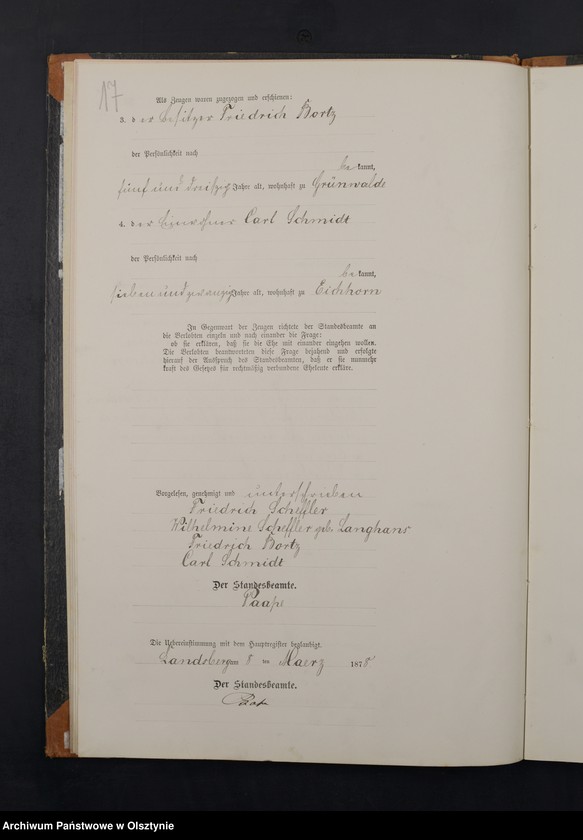 17
Als Zeugen waren zugezogen und erschienen:
3. der Besitzer Friedrich Bortz
der Persönlichkeit nach
be kannt,
fünf und dreißig Jahre alt, wohnhaft zu Grünwalde
4. der Einwohner Carl Schmidt
der Persönlichkeit nach
be kannt,
sieben und zwanzig Jahre alt, wohnhaft zu Eichhorn
In Gegenwart der Zeugen richtete der Standesbeamte an
die Verlobten einzeln und nach einander die Frage:
ob sie erklären, daß sie die Ehe mit einander eingehen wollen.
Die Verlobten beantworteten diese Frage bejahend und erfolgte
hierauf der Ausspruch des Standesbeamten, daß er sie nunmehr
kraft des Gesetzes für rechtmäßig verbundene Eheleute erkläre.
Vorgelesen, genehmigt und unterschrieben
Friedrich Scheffler
Wilhelmine Scheffler geb. Langhans
Friedrich Bortz
Carl Schmidt
Der Standesbeamte.
Paape
Die Uebereinstimmung mit dem Hauptregister beglaubigt.
Landsberg am 8 ten Maerz 1878
Der Standesbeamte.
Paape
Archiwum Państwowe w Olsztynie